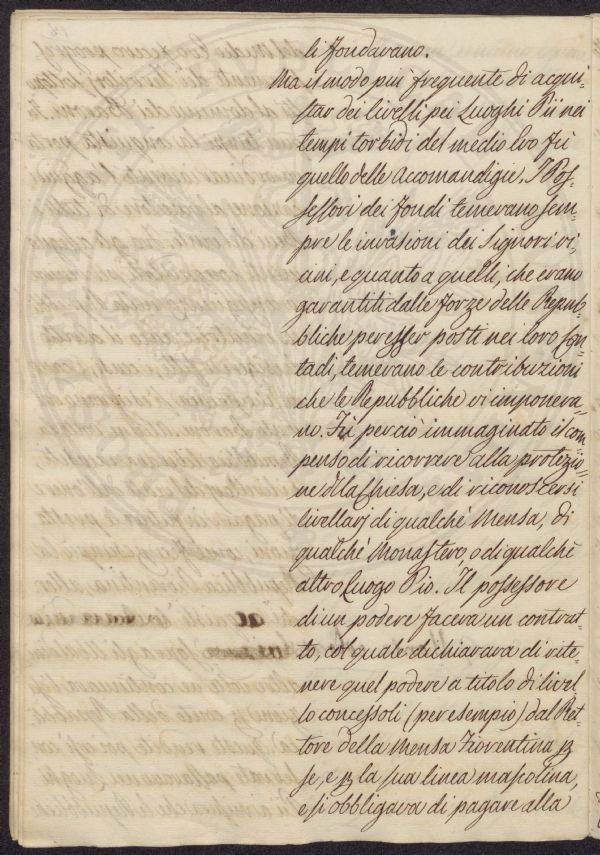 li fondavano.
Ma il modo più frequente di acqui-
star dei livelli pei Luoghi Pii nei
tempi torbidi del medio Evo fù
quello delle Accomandigie. I Pos-
sessori dei fondi temevano sem-
pre le invasioni dei Signori vi,
cini, e quanto a quelli, che erano
garantiti dalle forze delle Repub-
bliche per esser posti nei loro Con-
tadi, temevano le contribuzioni
che le Repubbliche vi imponeva-
no. Fù perciò immaginato il com
penso di ricorrere alla protezio-
ne della Chiesa, e di riconoscersi
livellarj di qualchè Mensa, di
qualchè Monastero, o di qualchè
altro Luogo Pio. Il possessore
di un podere faceva un contrat-
to, col quale dichiarava di rite-
nere quel podere a titolo di livel
lo concessoli (per esempio) dal Ret-
tore della Mensa Fiorentina p
se, e p la sua linea mascolina,
e si obbligava di pagare alla